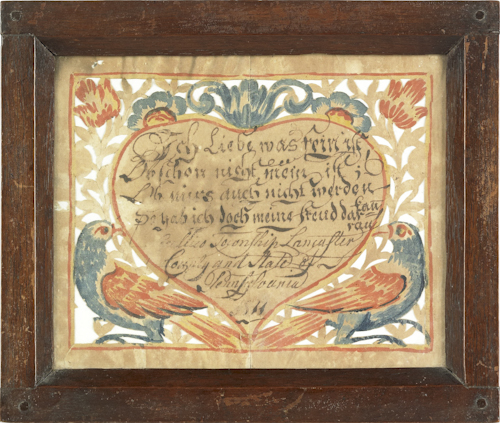 Ich Liebe was fein ist
Obschon nicht mein ist
Ob mirs auch nicht werden kan
So hab ich doch meine freud daran
Township Lancaster
County and State of
Pennsylvania